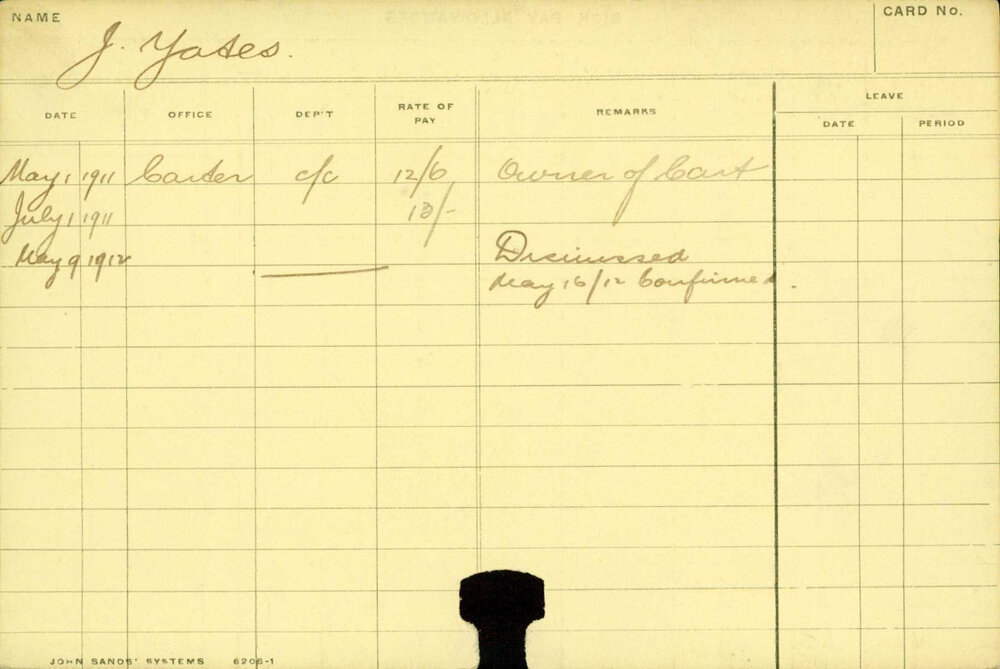 NAME
CARD No.
J. Yates.
LEAVE
DATE OFFICE DEP'T RATE OF PAY REMARKS DATE PERIOD
May 1 1911 Carter c/c 12/6 Owner of Cart
July 1 1911 13/-
May 9 1912 Dismissed
May 16/12 Confirmed.
JOHN SANDS' SYSTEMS 6206-1